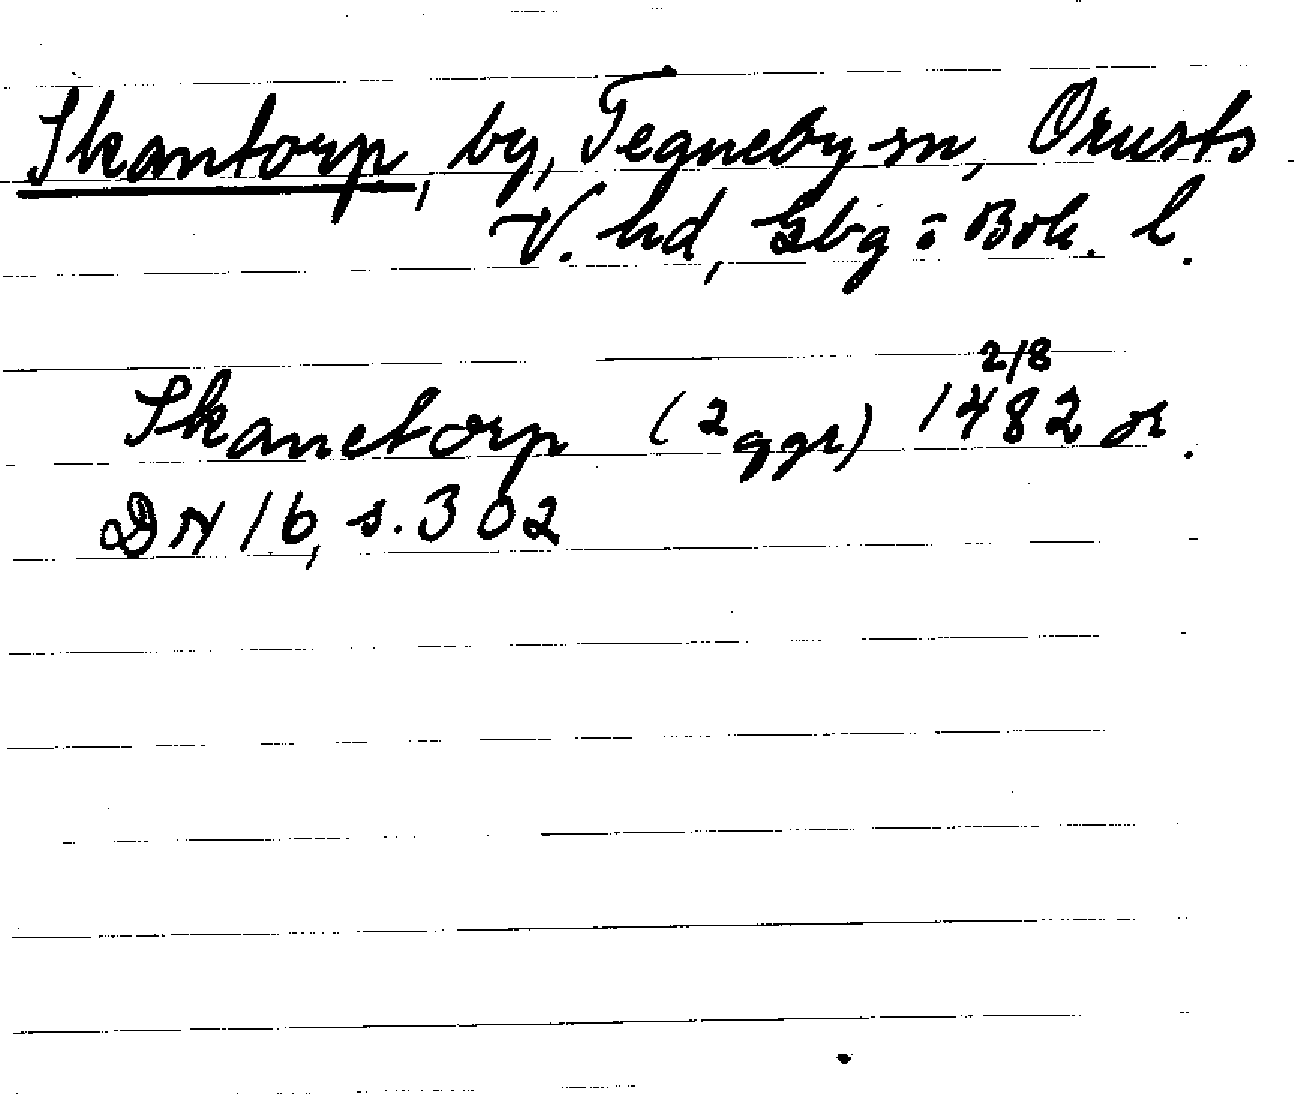 Skantorp, by, Tegneby sn, Orusts
V. hd, Gbg o Boh. l.
2/8
Skanetorp (2 ggr) 1482 or.
DN 16, s. 302